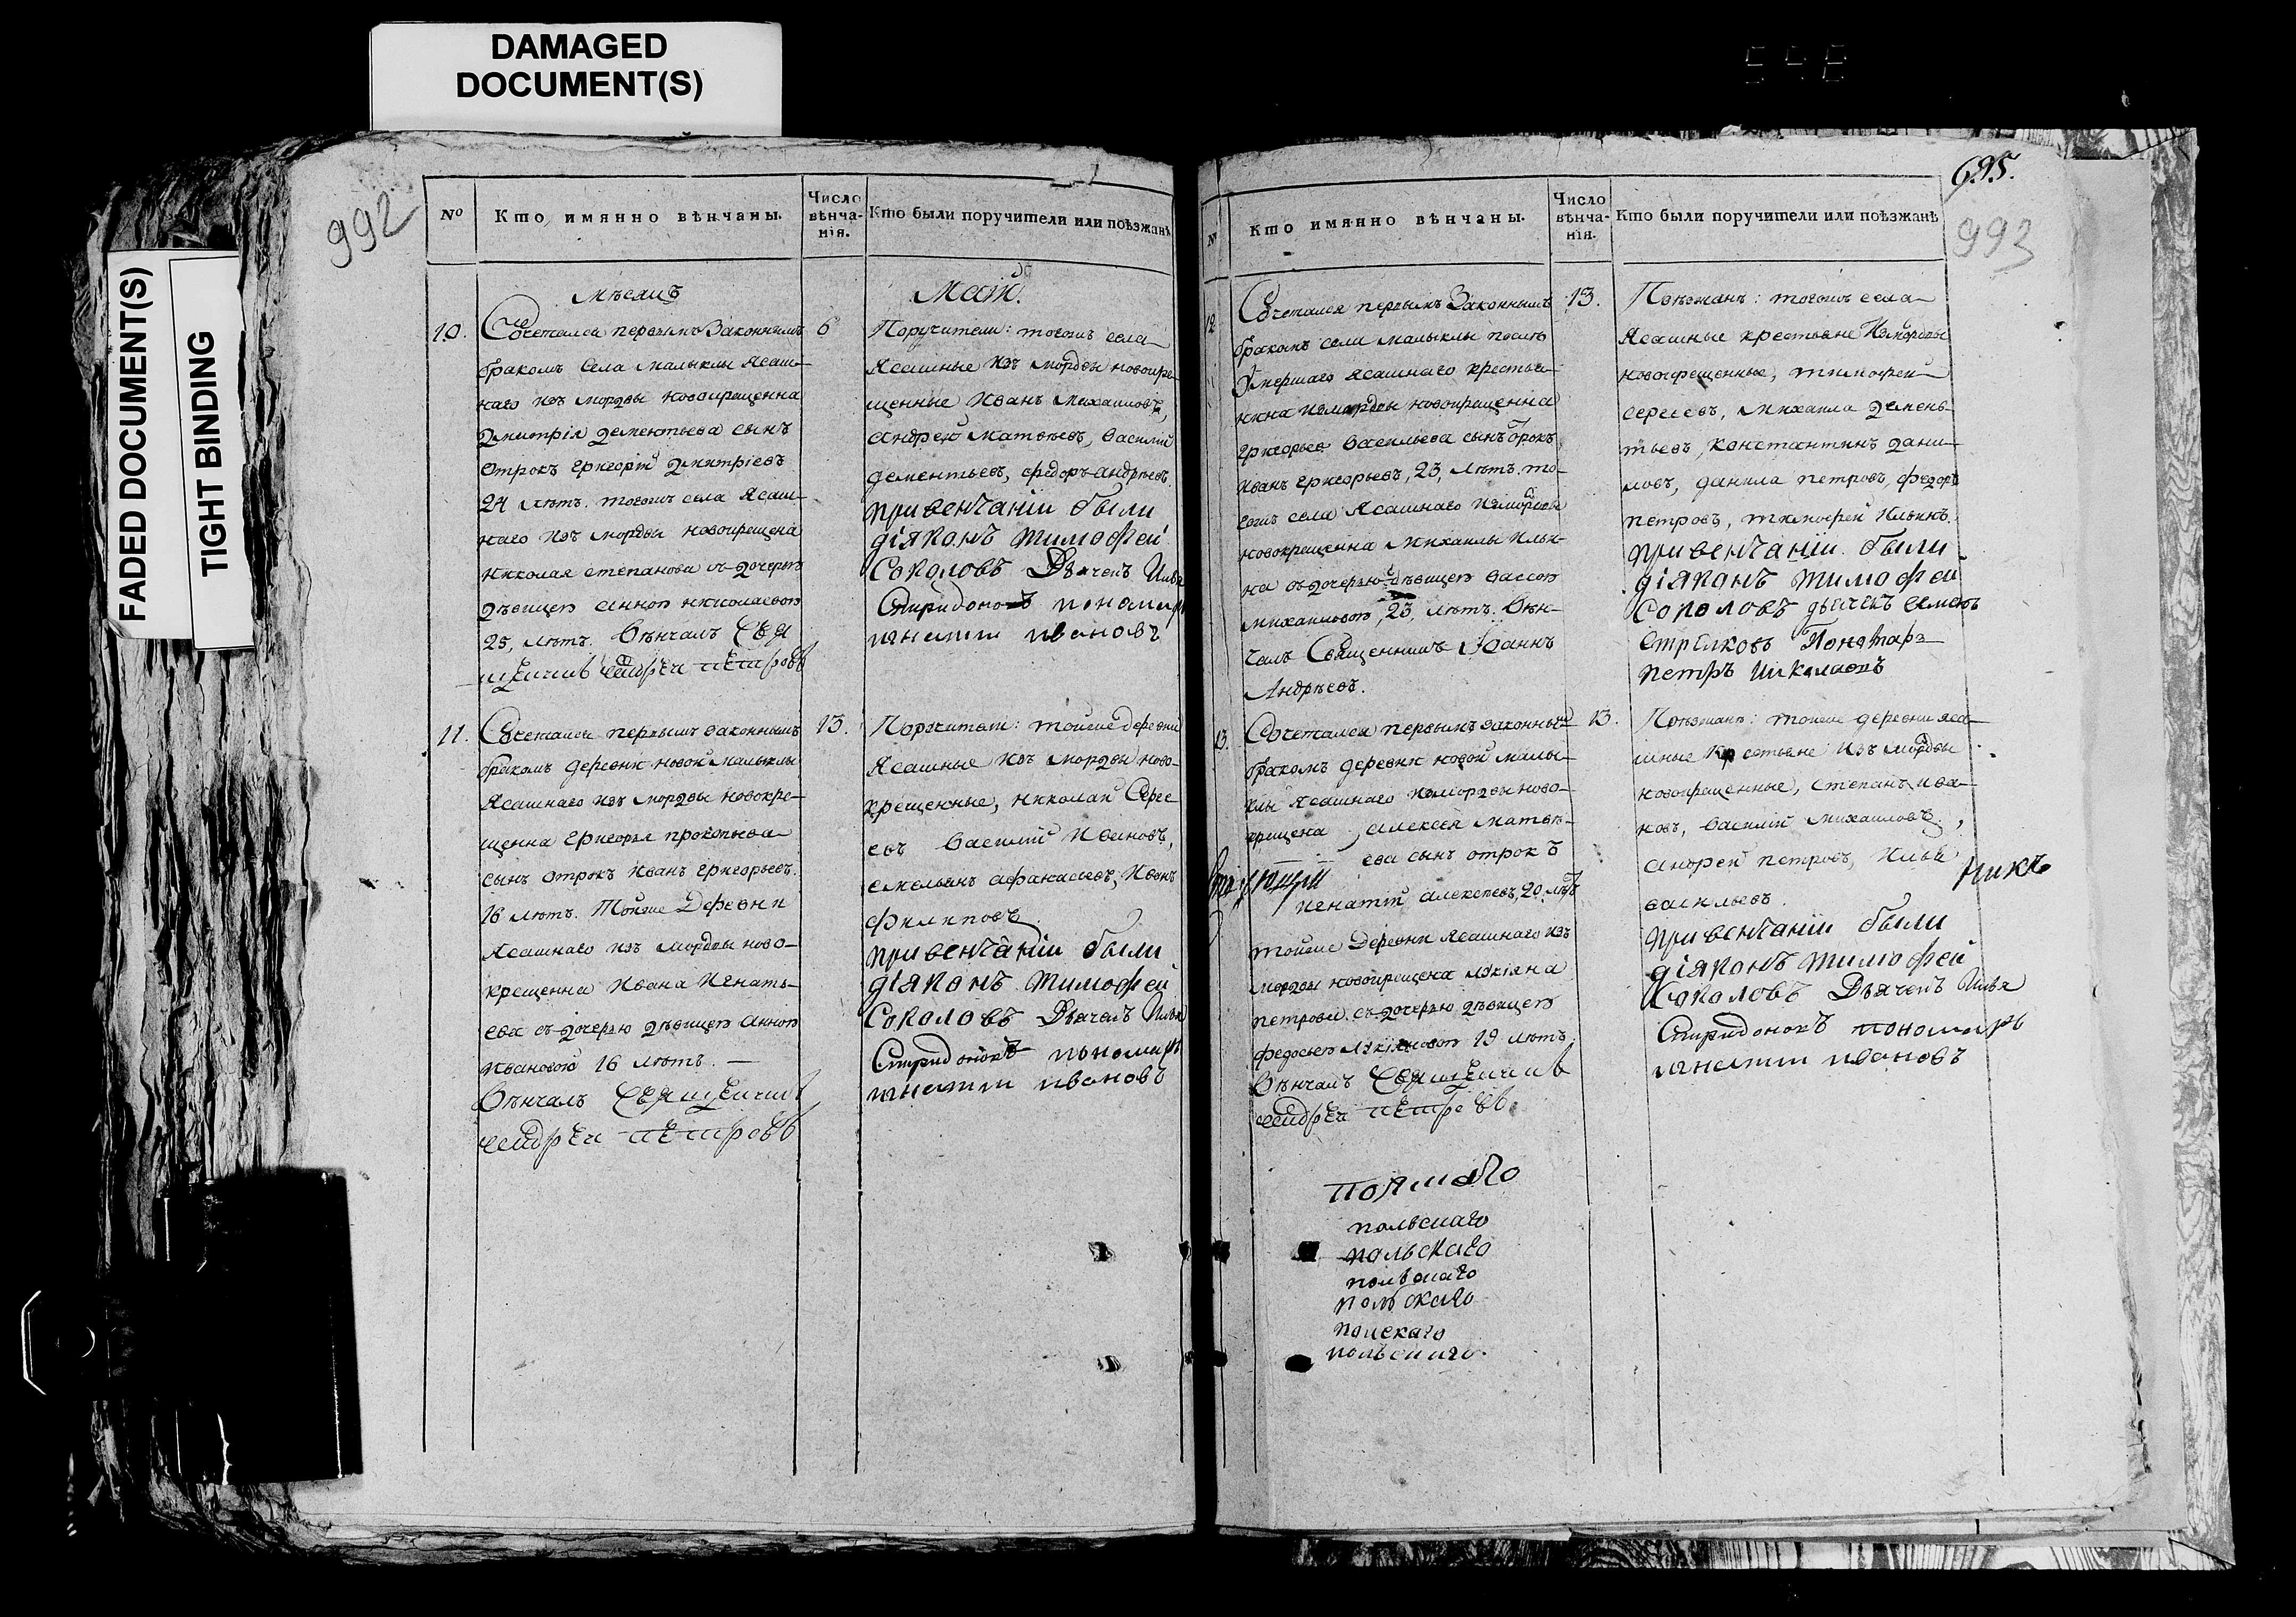 DAMAGED
DOCUMENT(S)
FADED DOCUMENT(S)
TIGHT BINDING
992
№
Кто имянно вѣнчаны.
Число
вѣнча-
нія.
Кто были поручители или поѣзжанѣ
мѣсяцъ
Маій.
10.
Сочетался первымъ Законнымъ
бракомъ Села малыклы Ясаш-
наго изъ мордвы новокрещенна
Дмитрія Дементьева сынъ
отрокъ Григорій Дмитріевъ
24 лѣтъ. тогожъ села Ясаш-
наго изъ мордвы новокрещена
Николая степанова съ дочерью
дѣвицею Анною николаевою
25, лѣтъ. Вѣнчалъ Свя
щенникъ андрей петровъ
6
Поручители: тогожъ села
Ясашные изъ мордвы новокре-
щенные Иванъ михаиловъ,
андрей матвѣевъ, василий
дементьевъ, федоръ андрѣевъ.
при венчаніи были
діяконъ тимофей
Соколовъ Дьячекъ Илья
Спиридоновъ пономарь
игнатии ивановъ
11.
Сочетался первымъ законнымъ
бракомъ деревни новой малыклы
Ясашнаго изъ мордвы новокре-
щенна Григорья прокопьева
сынъ отрокъ иванъ григорьевъ.
16 лѣтъ. Тойже Деревни
Ясашнаго изъ мордвы ново-
крещенна Ивана Игнать-
ева съ дочерью дѣвицею Анною
ивановою 16 лѣтъ. —
Вѣнчалъ Священникъ
андрей петровъ
13.
Поручители: тойже деревни
Ясашные изъ мордвы ново-
крещенные, николай Серге
евъ василий Ивановъ,
емельянъ афанасьевъ, Иванъ
филиповъ
при венчаніи были
діяконъ тимофей
Соколовъ Дьячекъ Илья
Спиридоновъ пономарь
игнатии ивановъ
695.
993
№
Кто имянно вѣнчаны.
Число
вѣнча-
нія.
Кто были поручители или поѣзжанѣ
12
Сочетался первымъ Законнымъ
бракомъ села малыклы послѣ
умершаго ясашнаго крестья-
нина изъ мордвы новокрещенна
григорьева васильева сынъ отрокъ
иванъ григорьевъ, 23, лѣтъ. то-
гожъ села Ясашнаго изъ мордвы
новокрещенна михаилы ильи-
на съ дочерью дѣвицею
михаиловою, 23, лѣтъ. Вѣн-
чалъ Священникъ Iоаннъ
Андрѣевъ.
13.
Поѣзжанѣ: тогожъ села
Ясашные крестьяне Изъ мордвы
новокрещенные, тимофей
сергѣевъ, михаила демень-
тьевъ, константинъ дани-
ловъ, данила петровъ, федоръ
петровъ, тимофей Ильинъ.
при венчаніи были
діяконъ тимофей
Соколовъ дьячекъ семенъ
Стрелковъ Пономарь
петръ Николаевъ
13.
Сочетался первымъ законнымъ
бракомъ деревни новой малы-
клы Ясашнаго изъ мордвы ново-
крещена алексея матвѣ-
ева сынъ отрокъ
игнатій алексѣевъ, 20 лѣтъ
тойже Деревни Ясашнаго изъ
мордвы новокрещена лукіяна
петрова съ дочерью дѣвицею
федосьею лукіяновою 19 лѣтъ
Вѣнчалъ Священникъ
андрей петровъ
13.
Поѣзжанѣ: тойже деревни яса-
шные крестьяне изъ мордвы
новокрещенные, степанъ ива-
новъ, василий михаиловъ,
андрей петровъ, Илья
васильевъ.
при венчаніи были
діяконъ тимофей
Соколовъ Дьячекъ Илья
Спиридоновъ пономарь
игнатии ивановъ
польскаго
польскаго
польскаго
польскаго
поискаго
польскаго